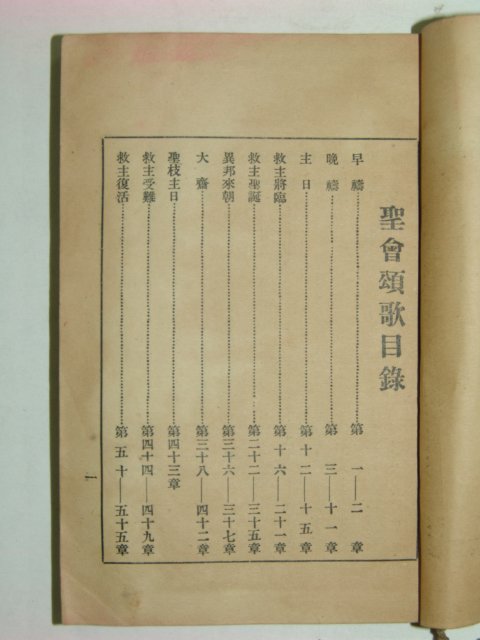 聖會頌歌目錄
早禱……第一——二章
晚禱……第三——十一章
主日……第十二——十五章
救主將臨……第十六——二十一章
救主聖誕……第二十二——三十五章
異邦來朝……第三十六——三十七章
大齋……第三十八——四十二章
聖枝主日……第四十三章
救主受難……第四十四——四十九章
救主復活……第五十——五十五章
一